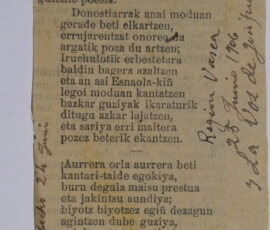 guiente poesía:
Donostiarrak anai moduan
gerade beti elkartzen,
errujarentzat onorea
argatik poza du artzen;
Iruchulotik erbestetara
baldin bagera azaltzen
eta an asi Esnaola-kiñ
legoi moduan kantatzen
bazkar guziyak ikaraturik
ditugu azkar lajatzen,
eta sariya erri maitera
pozez beterik ekantzen.
¡Aurrera orla aurrera beti
kantari-talde egokiya,
buru degula maisu prestua
eta jakintsu aundiya;
biyotz biyotzez egiñ dezagun
agintzen dube guziya,
Region Vasca
28 Junio 1906
y La Voz de
24 Juni